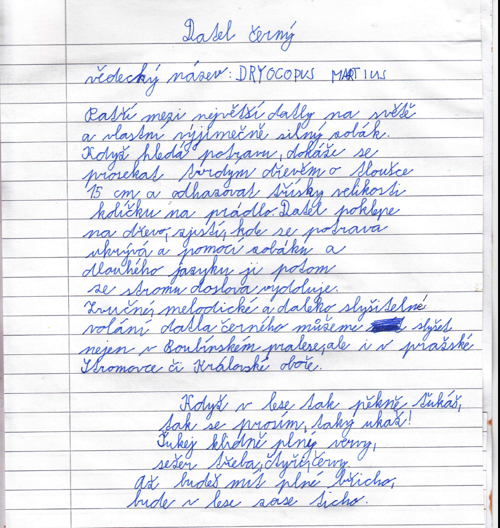 Datel černý
vědecký název: DRYOCOPUS MARTIUS
Patří mezi největší datly na světě
a vlastní výjimečně silný zobák.
Když hledá potravu, dokáže se
prosekat tvrdým dřevěm o tloušce
15 cm a odhazovat třísky velikosti
kolíčku na prádlo. Datel poklepe
na dřevo, zjistí, kde se potrava
ukrývá a pomocí zobáku a
dlouhého jazyku ji potom
ze stromu doslova vydoluje.
Zvučné, melodické a daleko slyšitelné
volání datla černého můžeme slyšet
nejen v Boubínském pralese, ale i v pražské
Stromovce či Královské oboře.
Když v lese tak pěkně ťukáš,
tak se prosím, taky ukaž!
Ťukej klidně plný vervy,
sežer třeba, čtyři, červy
Až budeš mít plné břicho,
bude v lese zase ticho.